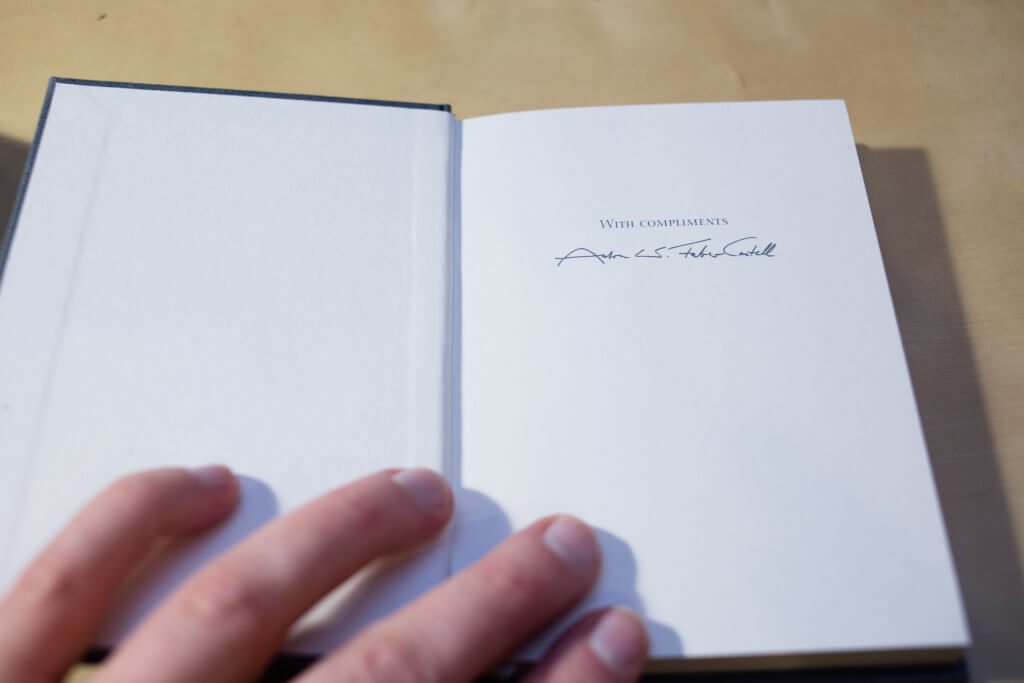 With compliments
Anton W. Faber-Castell